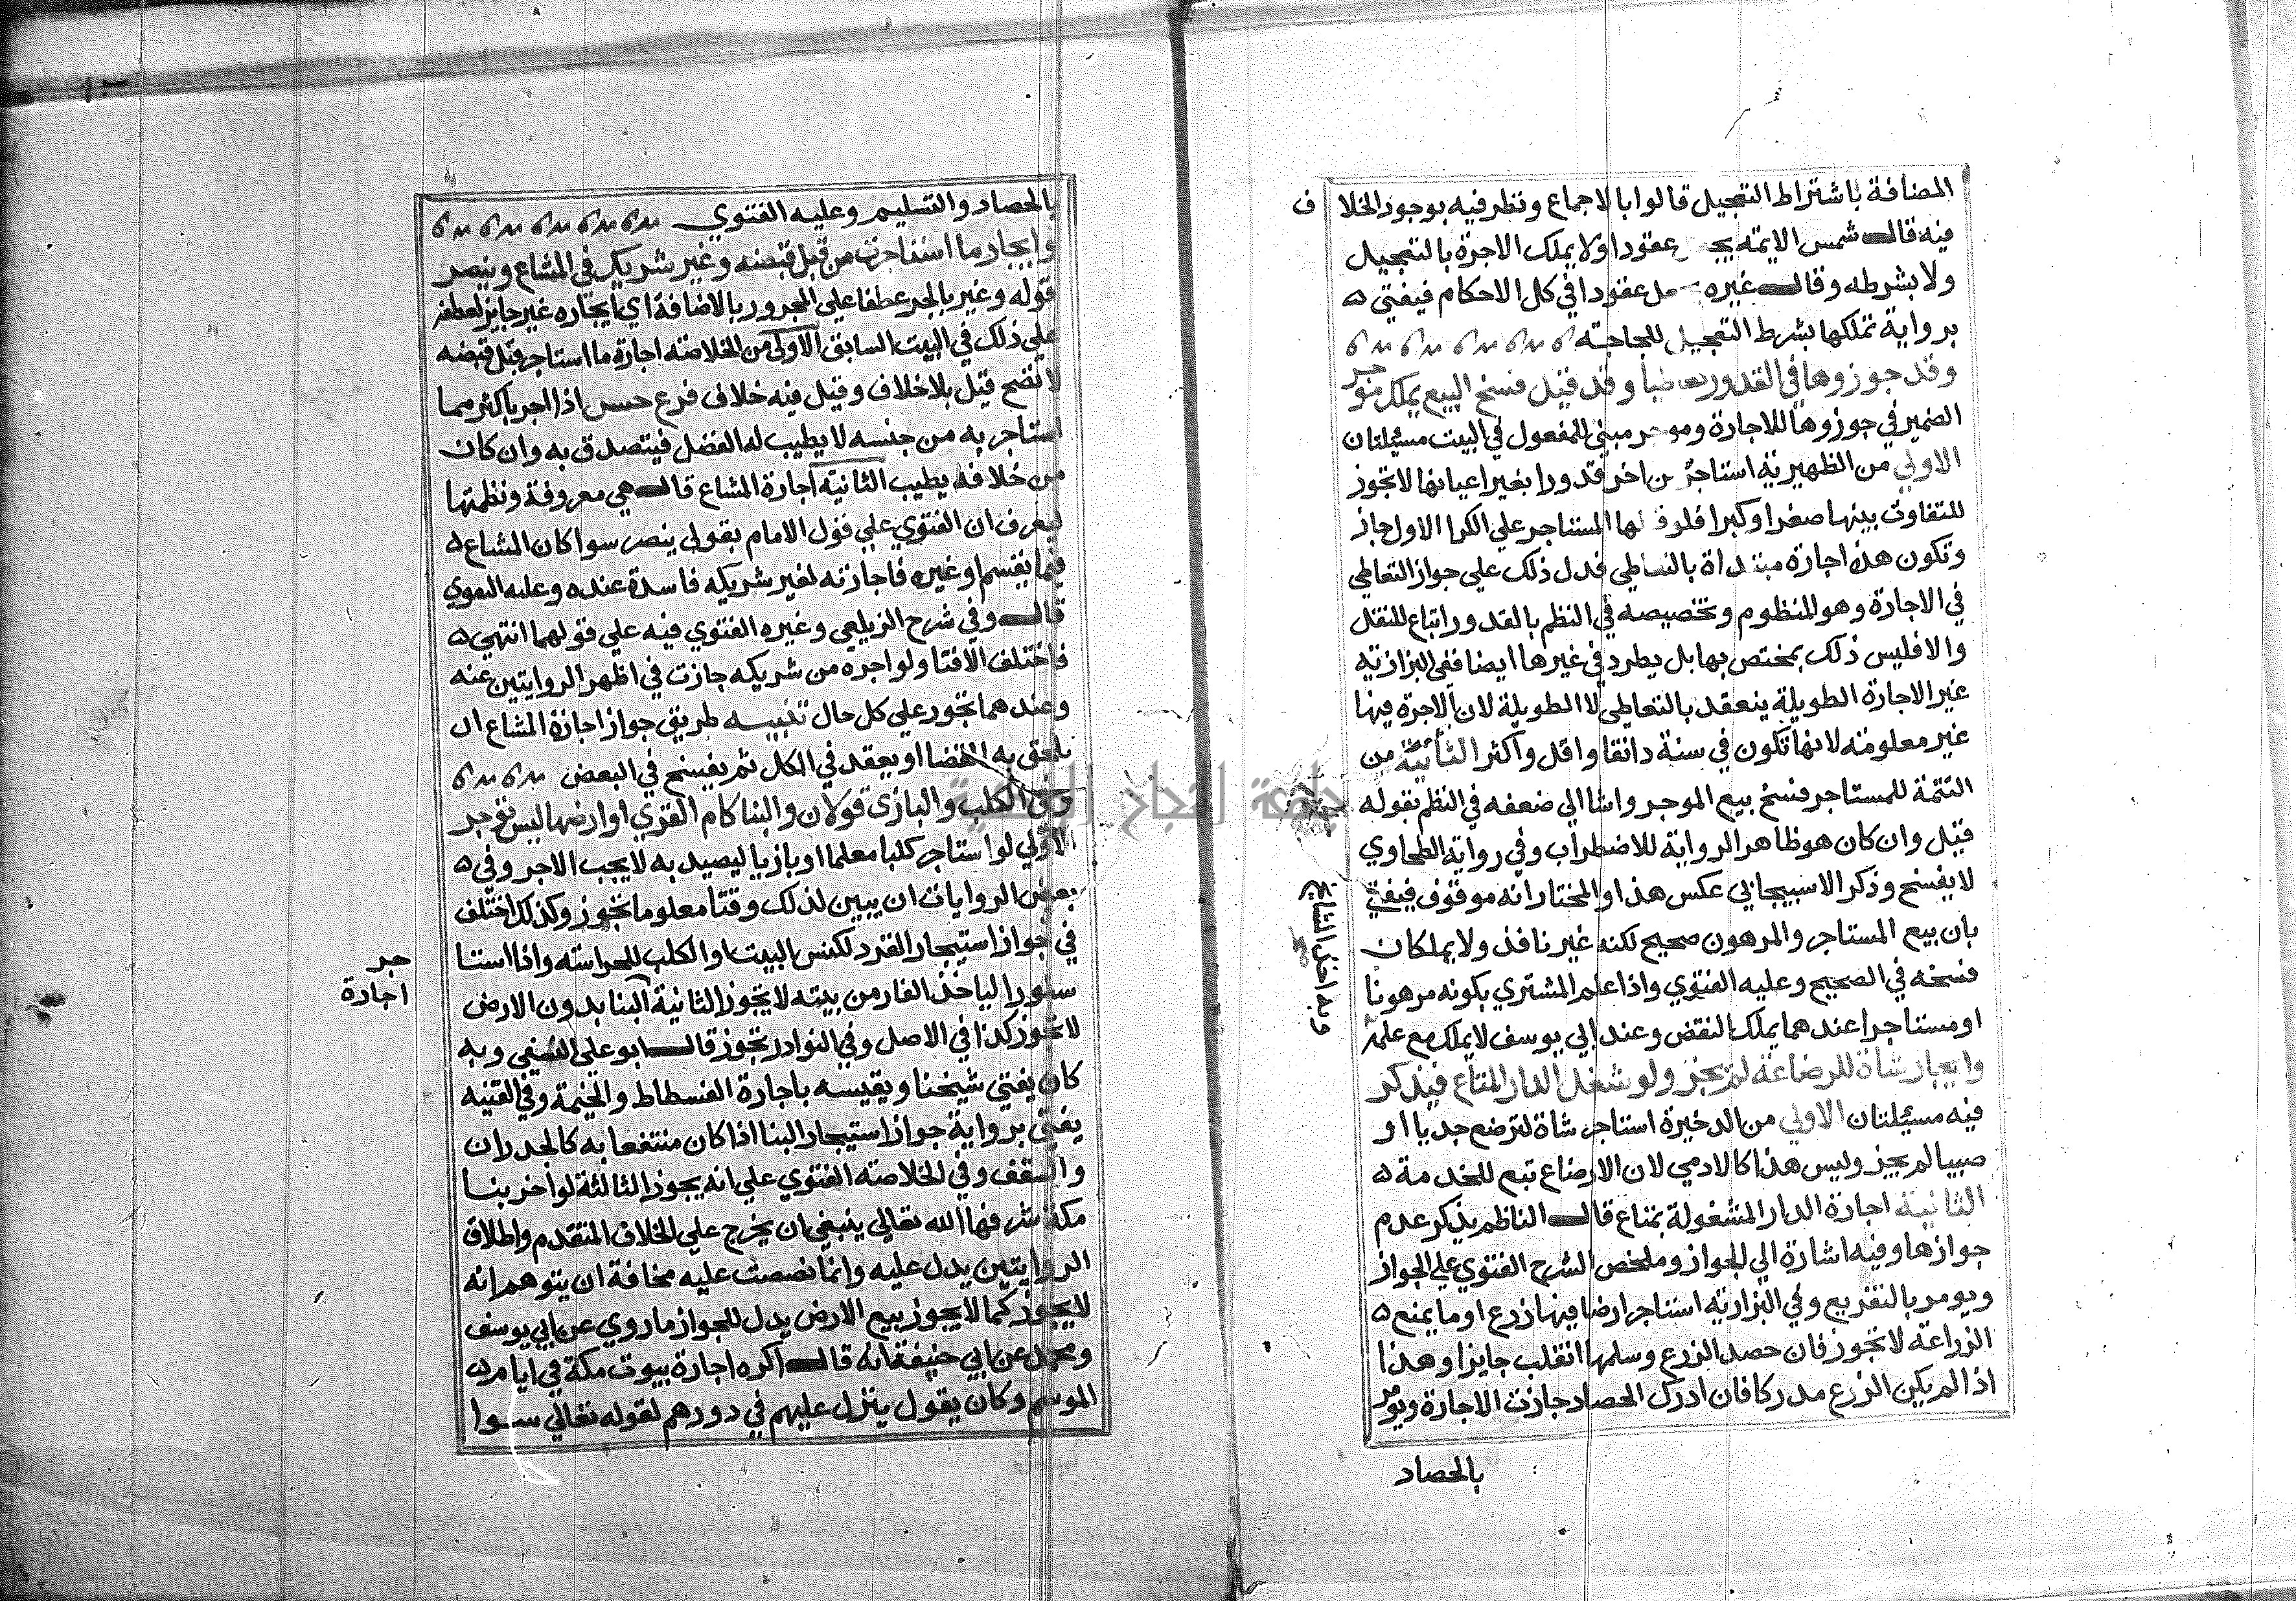 المضافة باشتراط التعجيل قالوا بالاجماع ونظر فيه بوجود الخلا ف
فيه قال شمس الايمة عقودا ولا يملك الاجرة بالتعجيل
ولا بشرطه وقال غيره عقودا في كل الاحكام فيفتي ه
برواية تملكها بشرط التعجيل للحاجة
وقد جوزوها في القدور تعاطيا وقد قيل فسخ البيع يملك موجر
الضمير في جوزوها للاجارة وموجر مبني للمفعول في البيت مسئلتان
الاولي من الظهيرية استاجر من اخر قدورا بغير اعيانها لا تجوز
للتفاوت بينها صغرا وكبرا فلو لها المستاجر علي الكرا الاول جاز
وتكون هذه اجارة مبتداة بالتعاطي فدل ذلك علي جواز التعاطي
في الاجارة وهو المنظوم وتخصيصه في النظم بالقدور اتباع للنقل
والا فليس ذلك بمختص بها بل يطرد في غيرها ايضا ففي البزازية
غير الاجارة الطويلة ينعقد بالتعاطي لا الطويلة لان الاجرة فيها
غير معلومة لانها تكون في سنة دانقا واقل واكثر الثانية من
التتمة للمستاجر فسخ بيع الموجر واشا الي ضعفه في النظم بقوله
قيل وان كان هو ظاهر الرواية للاضطراب وفي رواية الطحاوي
لا يفسخ وذكر الاسبيجابي عكس هذا والمختار انه موقوف فيفتي
بان بيع المستاجر والمرهون صحيح لكنه غير نافذ ولا يملكان
فسخه في الصحيح وعليه الفتوي واذا علم المشتري بكونه مرهونا
او مستاجرا عندهما يملك النقض وعند ابي يوسف لا يملك مع علمه
وايجار شاة للرضاعة لم يجز ولو شغل الدار المتاع فيذكر
فيه مسئلتان الاولي من الذخيرة استاجر شاة لترضع جديا او
صبيا لم يجز وليس هذا كالادمي لان الارضاع تبع للخدمة ه
الثانية اجارة الدار المشغولة بمتاع قال الناظم يذكر عدم
جوازها وفيه اشارة الي الجواز وملخص الشرح الفتوي علي الجواز
ويومر بالتفريع وفي البزازية استاجر ارضا فيها زرع او ما يمنع ه
الزراعة لا تجوز فان حصد الزرع وسلمها انقلب جايزا وهذا
اذا لم يكن الزرع مدركا فان ادرك الحصاد جازت الاجارة ويومر
بالحصاد
بالحصاد والتسليم وعليه الفتوي
وايجار ما استاجرت من قبل قبضه وغير شريك في المشاع وينصر
قوله وغير بالجر عطفا علي المجرور بالاضافة اي ايجاره غير جايز لعطفه
علي ذلك في البيت السابق الاولي من الخلاصة اجارة ما استاجر قبل قبضه
لا تصح قيل بلا خلاف وقيل فيه خلاف فرع حسن اذا اجر باكثر مما
استاجر به من جنسه لا يطيب له الفضل فيتصدق به وان كان
من خلافه يطيب الثانية اجارة المشاع قال هي معروفة ونظمتها
ليعرف ان الفتوي علي قول الامام بقولي ينصر سوا كان المشاع ه
فيما يقسم او غيره فاجازته لغير شريكه فاسدة عنده وعليه الفتوي
قال وفي شرح الزيلعي وغيره الفتوي فيه علي قولهما انتهي ه
فاختلف الافتا ولو اجره من شريكه جازت في اظهر الروايتين عنه
وعندهما تجوز علي كل حال تنبيه طريق جواز اجارة المشاع ان
يلحق به القضا او يعقد في الكل ثم يفسخ في البعض
وفي الكلب والبازي قولان والبنا كام القري او ارضها ليس توجر
الاولي لو استاجر كلبا معلما او بازيا ليصيد به لا يجب الاجر وفي ه
بعض الروايات ان يبين لذلك وقتا معلوما تجوز وكذلك اختلف
في جواز استيجار القرد لكنس البيت او الكلب للحراسة واذا استا جر
سنورا لياخذ الفار من بيته لا تجوز الثانية البنا بدون الارض اجارة
لا تجوز كذا في الاصل وفي النوادر تجوز قال ابو علي النسفي وبه
كان يفتي شيخنا ويقيسه باجارة الفسطاط والخيمة وفي القنية
يفتي برواية جواز استيجار البنا اذا كان منتفعا به كالجدران
والسقف وفي الخلاصة الفتوي علي انه يجوز الثالثة لو اخر بنا
مكة شرفها الله تعالي ينبغي ان يخرج علي الخلاف المتقدم واطلاق
الروايتين يدل عليه وانما نصصت عليه مخافة ان يتوهم انه
لا يجوز كما لا يجوز بيع الارض يدل للجواز ما روي عن ابي يوسف
ومحمد عن ابي حنيفة انه قال اكره اجارة بيوت مكة في ايام ه
الموسم وكان يقول ينزل عليهم في دورهم لقوله تعالي سوا